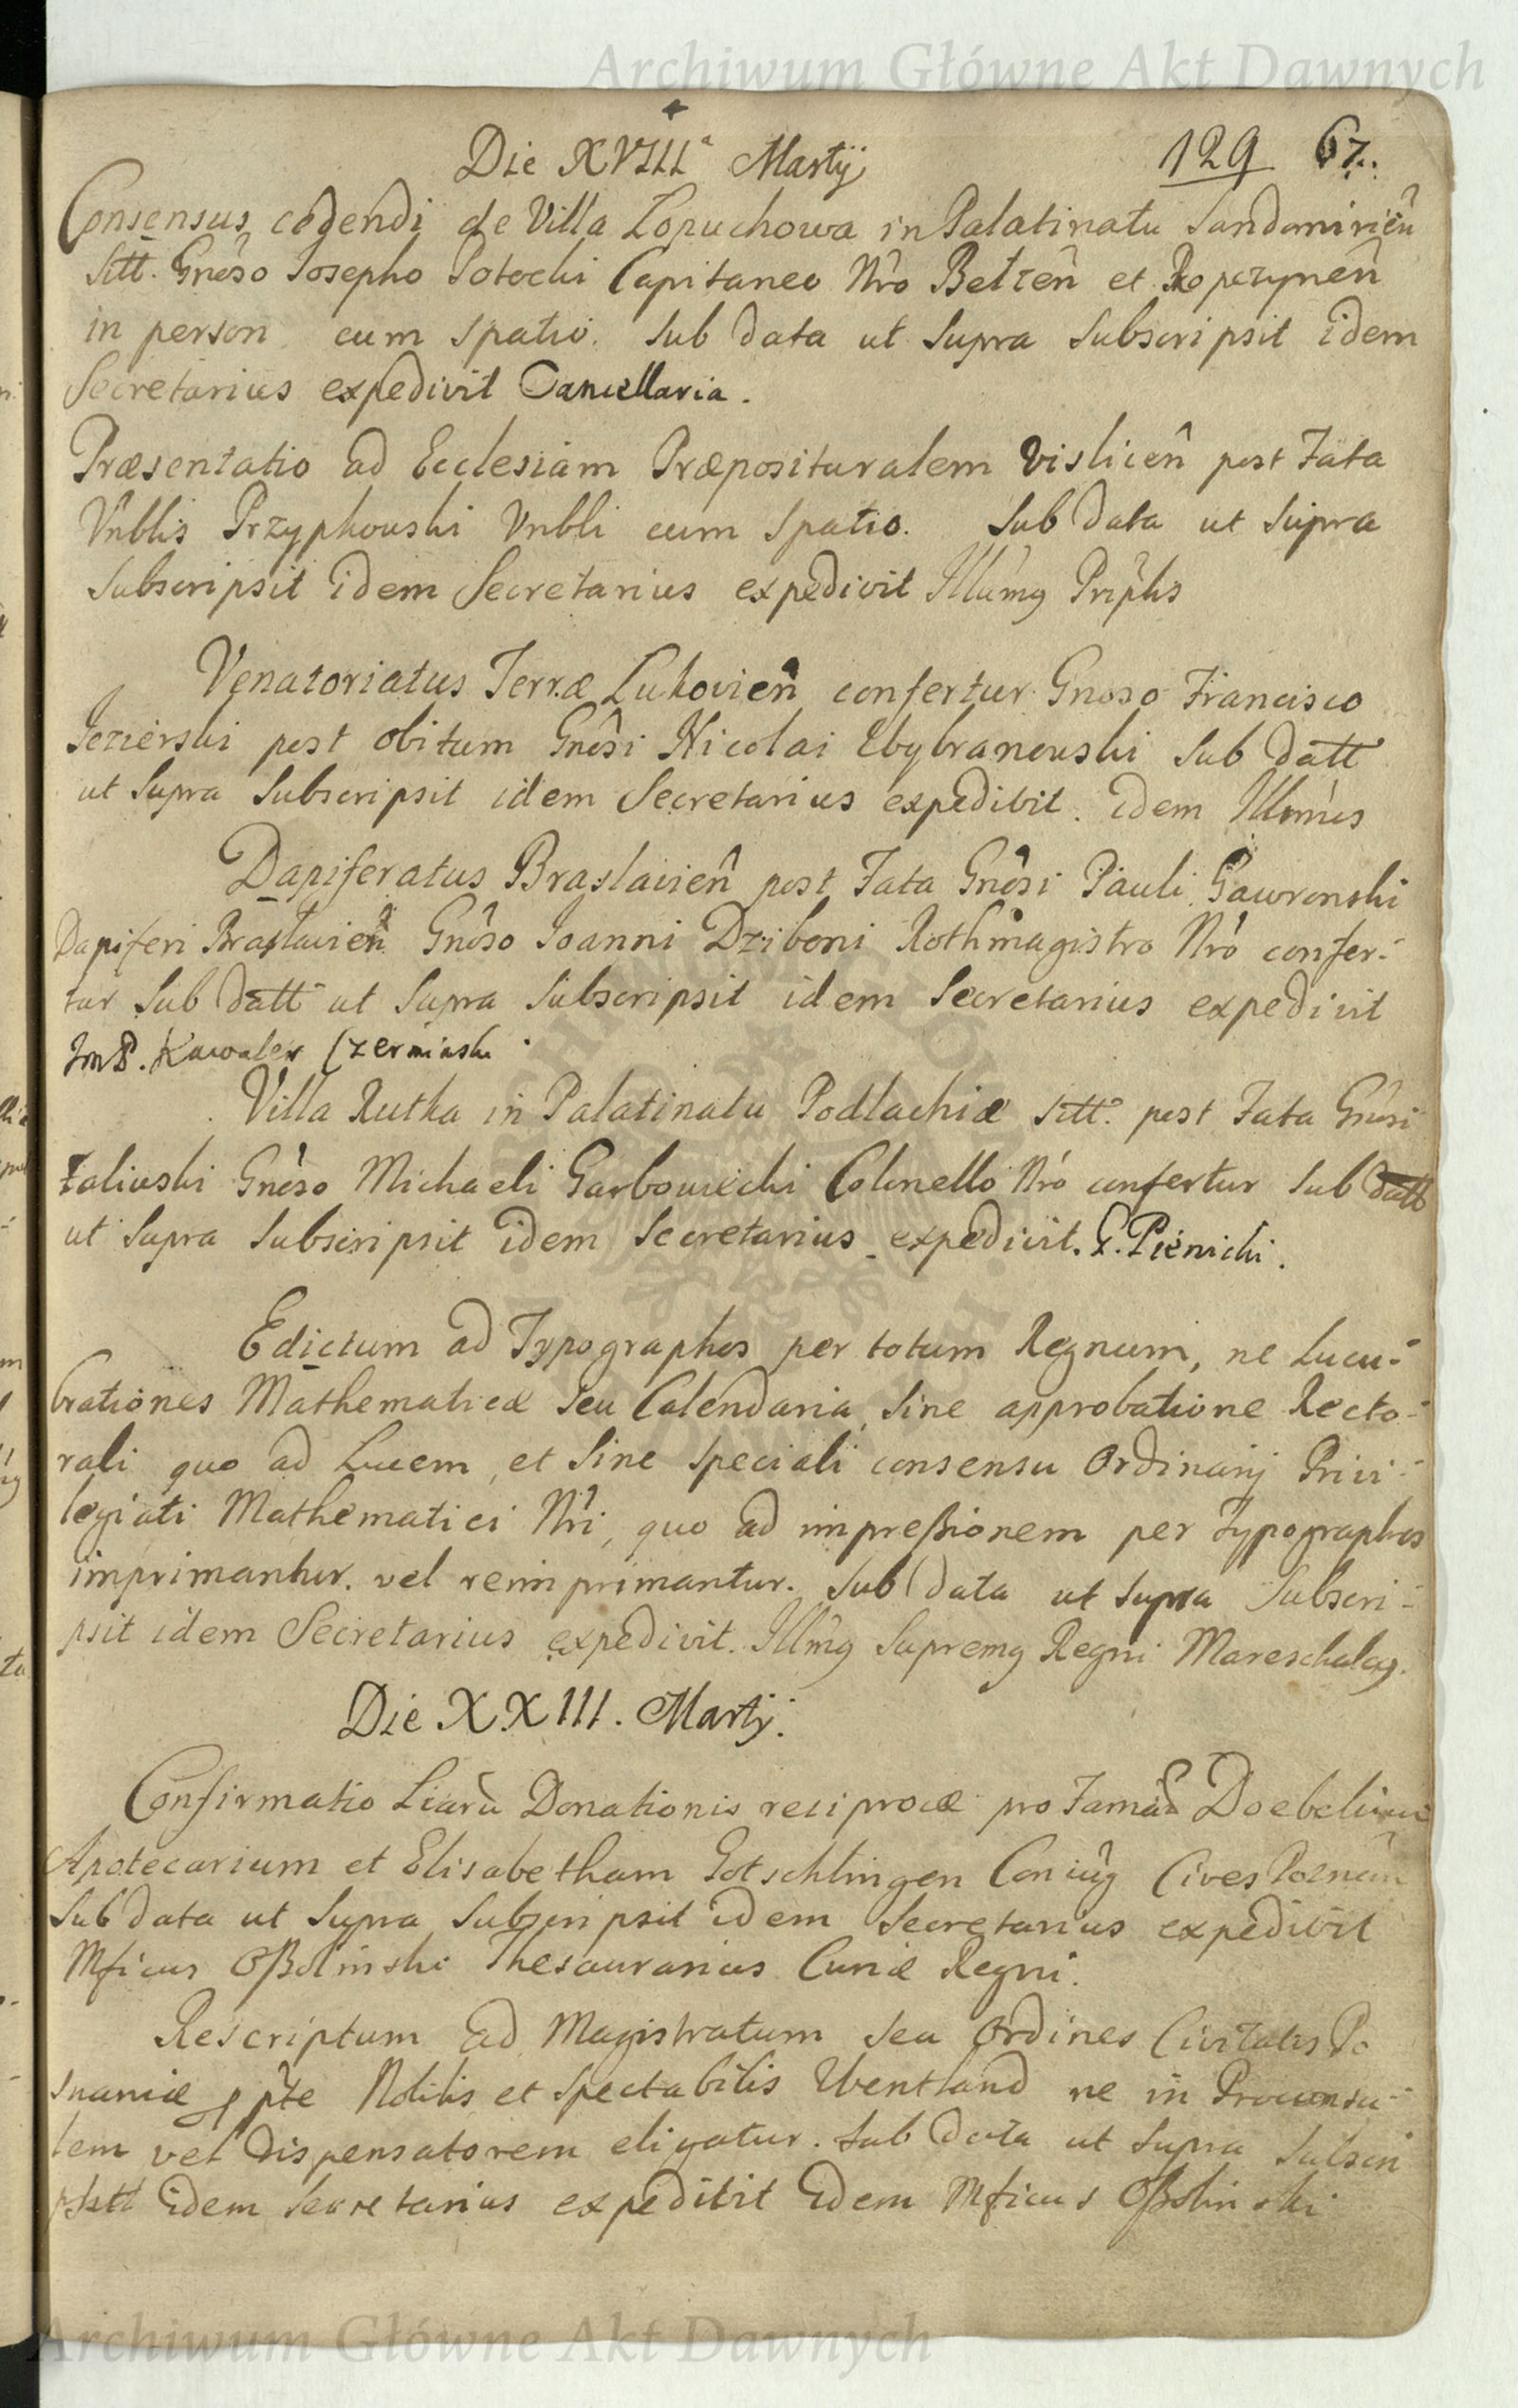 Archiwum Główne Akt Dawnych
Die XVIII Martij 129 67.
Consensus cedendi de Villa Lopuchowa in Palatinatu Sandomirien̂
sitt. Gnôso Josepho Potocki Capitaneo Nr̂o Belzen̂ et Ropczynen̂
in person cum spatio. Sub data ut supra subscripsit idem
Secretarius expedivit Cancellaria.
Præsentatio ad Ecclesiam Præposituralem Vislicen̂ post Fata
Vnblis Przypkowski Vnbli cum spatio. Sub data ut supra
subscripsit idem Secretarius expedivit Illûmg
Venatoriatus Terræ Lukovien̂ confertur Gnoso Francisco
Jezierski post obitum Gnôsi Nicolai Wybranowski sub datt
ut supra subscripsit idem Secretarius expedivit. idem Illmus
Dapiferatus Braslavien̂ post Fata Gnôsi Pauli Gawronski
Dapiferi Braslavien̂ Gnôso Joanni Dziboni Rothmagistro Nrô confer-
tur sub datt ut supra subscripsit idem Secretarius expedivit
JmP. Kawaler Czerminski.
Villa Rutka in Palatinatu Podlachiæ sitt. post Fata Gnôsi
Zaliwski Gnôso Michaeli Garbowiecki Colonello Nrô confertur sub datt
ut supra subscripsit idem Secretarius expedivit. G. Pienicki.
Edictum ad Typographos per totum Regnum, ne Lucu-
brationes Mathematicæ seu Calendaria, sine approbatione Recto-
rali quo ad Lucem, et sine speciali consensu Ordinarij Privi-
legiati Mathematici Nri, quo ad impreßionem per Typographos
imprimantur. vel reimprimantur. Sub data ut supra subscri-
psit idem Secretarius expedivit. Illm̂g Supremg Regni Mareschalcg.
Die XXIII. Martij.
Confirmatio Liarû Donationis reciprocæ pro
Apotecarium et Elisabetham Gotschlingen Coniûg Cives
Sub data ut supra subscripsit idem Secretarius expedivit
Mficus Oßolinski Thesaurarius Curiæ Regni.
Rescriptum ad Magistratum seu Ordines Civitatis Po
snaniæ Nobilis et spectabilis Wentland ne in Proconsu-
lem vel Dispensatorem eligatur. Sub data ut supra subscri
psitt idem Secretarius expedivit idem Mficus Oßolinski
Archiwum Główne Akt Dawnych